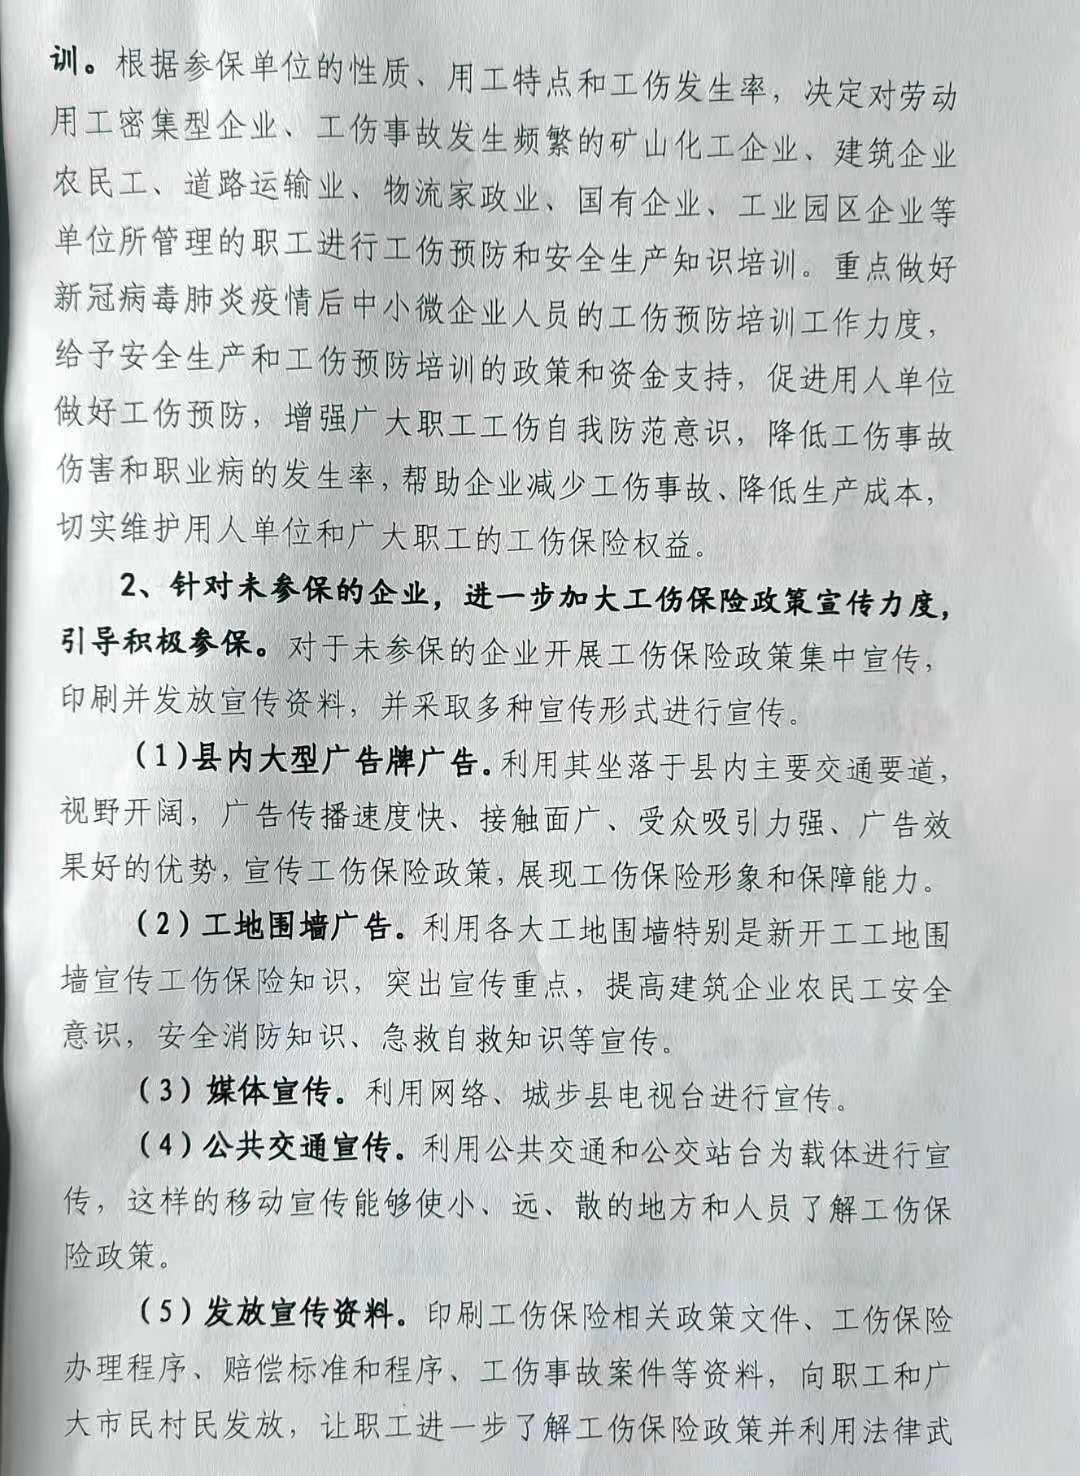 训。根据参保单位的性质、用工特点和工伤发生率，决定对劳动
用工密集型企业、工伤事故发生频繁的矿山化工企业、建筑企业
农民工、道路运输业、物流家政业、国有企业、工业园区企业等
单位所管理的职工进行工伤预防和安全生产知识培训。重点做好
新冠病毒肺炎疫情后中小微企业人员的工伤预防培训工作力度，
给予安全生产和工伤预防培训的政策和资金支持，促进用人单位
做好工伤预防，增强广大职工工伤自我防范意识，降低工伤事故
伤害和职业病的发生率，帮助企业减少工伤事故、降低生产成本，
切实维护用人单位和广大职工的工伤保险权益。
2、针对未参保的企业，进一步加大工伤保险政策宣传力度，
引导积极参保。对于未参保的企业开展工伤保险政策集中宣传，
印刷并发放宣传资料，并采取多种宣传形式进行宣传。
（1）县内大型广告牌广告。利用其坐落于县内主要交通要道，
视野开阔，广告传播速度快、接触面广、受众吸引力强、广告效
果好的优势，宣传工伤保险政策，展现工伤保险形象和保障能力。
（2）工地围墙广告。利用各大工地围墙特别是新开工工地围
墙宣传工伤保险知识，突出宣传重点，提高建筑企业农民工安全
意识，安全消防知识、急救自救知识等宣传。
（3）媒体宣传。利用网络、城步县电视台进行宣传。
（4）公共交通宣传。利用公共交通和公交站台为载体进行宣
传，这样的移动宣传能够使小、远、散的地方和人员了解工伤保
险政策。
（5）发放宣传资料。印刷工伤保险相关政策文件、工伤保险
办理程序、赔偿标准和程序、工伤事故案件等资料，向职工和广
大市民村民发放，让职工进一步了解工伤保险政策并利用法律武